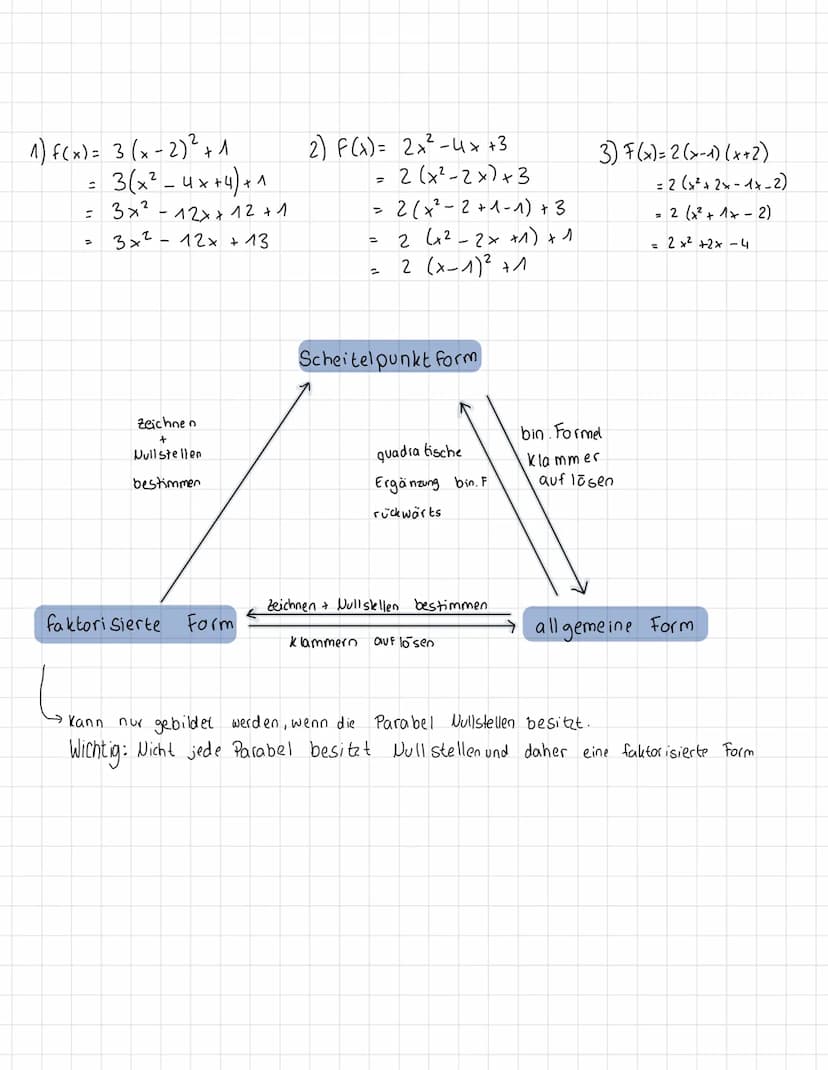 1) f(x) = 3(x-2)² + 1
= 3(x² - 4x+4) + 1
= 3x² - 12x + 12 + 1
= 3x² - 12x + 13
2) F(x) = 2x² - 4x + 3
= 2(x² - 2x) + 3
= 2(x² - 2 + 1 - 1) + 3
= 2 (x² - 2x + 1) + 1
= 2 (x-1)² + 1
3) F(x) = 2(x-1)(x+2)
= 2(x² + 2x - 1x - 2)
= 2 (x² + 1x - 2)
= 2x² + 2x - 4
Scheitelpunktform
zeichnen
+
Nullstellen
bestimmen
quadratische
Ergänzung bin. F
rückwärts
bin. Formel
Klammer
auflösen
faktorisierte Form
zeichnen + Nullstellen bestimmen
klammern auflösen
allgemeine Form
→ kann nur gebildet werden, wenn die Parabel Nullstellen besitzt.
Wichtig: Nicht jede Parabel besitzt Nullstellen und daher eine faktorisierte Form